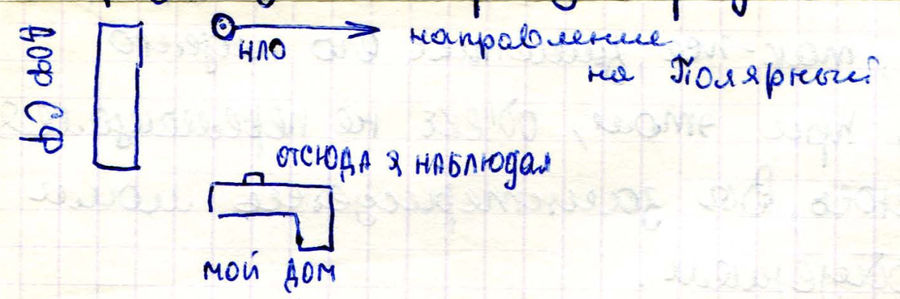 НЛО
направление
на Полярный
ДОФ СФ
ОТСЮДА Я НАБЛЮДАЛ
МОЙ ДОМ